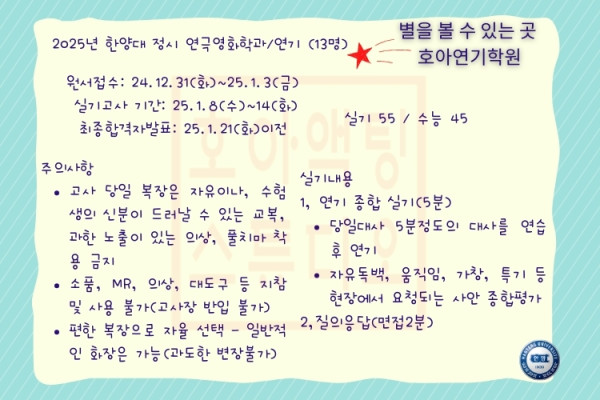 2025년 한양대 정시 연극영화학과/연기 (13명)
별을 볼 수 있는 곳
호아연기학원
원서접수: 24.12.31(화)~25.1.3(금)
실기고사 기간: 25.1.8(수)~14(화)
최종합격자발표: 25.1.21(화)이전
실기 55 / 수능 45
주의사항
• 고사 당일 복장은 자유이나, 수험
생의 신분이 드러날 수 있는 교복,
과한 노출이 있는 의상, 풀치마 착
용 금지
• 소품, MR, 의상, 대도구 등 지참
및 사용 불가(고사장 반입 불가)
• 편한 복장으로 자율 선택 - 일반적
인 화장은 가능(과도한 변장불가)
실기내용
1, 연기 종합 실기(5분)
• 당일대사 5분정도의 대사를 연습
후 연기
• 자유독백, 움직임, 가창, 특기 등
현장에서 요청되는 사안 종합평가
2,질의응답(면접2분)
호아액팅
스튜디오